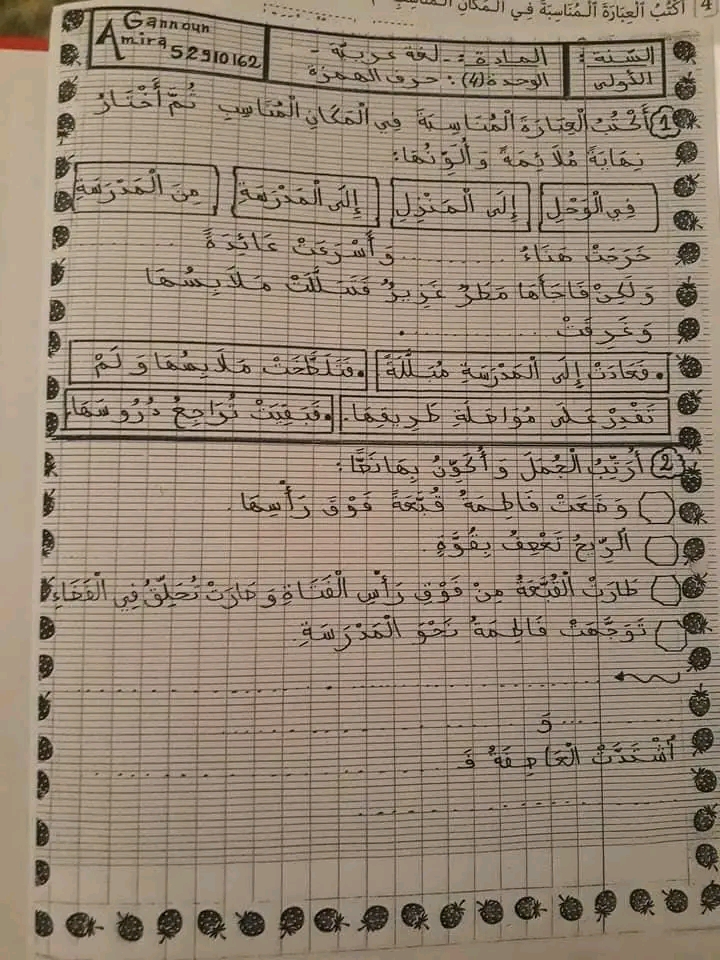 4 أَكْتُبُ الْعِبَارَةَ الْمُنَاسِبَةَ فِي الْمَكَانِ الْمُنَاسِبِ
السّنة : الأولى
المادة :- لغة عربيّة -
الوحدة (4) : حرف الهمزة
Gannoun
Amira 52910162
1) أَكْتُبُ الْعِبَارَةَ الْمُنَاسِبَةَ فِي الْمَكَانِ الْمُنَاسِبِ ثُمَّ أَخْتَارُ
نِهَايَةً مُلَائِمَةً وَأُلَوِّنُهَا:
فِي الْوَحْلِ
إِلَى الْمَنْزِلِ
إِلَى الْمَدْرَسَةِ
مِنَ الْمَدْرَسَةِ
خَرَجَتْ هَنَاءُ .......... وَأَسْرَعَتْ عَائِدَةً ..........
وَلَكِنْ فَاجَأَهَا مَطَرٌ غَزِيرٌ فَتَبَلَّلَتْ مَلَابِسُهَا
وَغَرِقَتْ ..........
• فَعَادَتْ إِلَى الْمَدْرَسَةِ مُبَلَّلَةً
• فَتَلَطَّخَتْ مَلَابِسُهَا وَلَمْ
تَقْدِرْ عَلَى مُوَاصَلَةِ طَرِيقِهَا.
• فَبَقِيَتْ تُرَاجِعُ دُرُوسَهَا.
2) أُرَتِّبُ الْجُمَلَ وَأُكَوِّنُ بِهَا نَصًّا:
وَضَعَتْ فَاطِمَةُ قُبَّعَةً فَوْقَ رَأْسِهَا.
الرِّيحُ تَعْصِفُ بِقُوَّةٍ.
طَارَتْ الْقُبَّعَةُ مِنْ فَوْقِ رَأْسِ الْفَتَاةِ وَصَارَتْ تُحَلِّقُ فِي الْفَضَاءِ
تَوَجَّهَتْ فَاطِمَةُ نَحْوَ الْمَدْرَسَةِ.
.......... وَ ..........
اُشْتَدَّتْ الْعَاصِفَةُ فَـ ..........